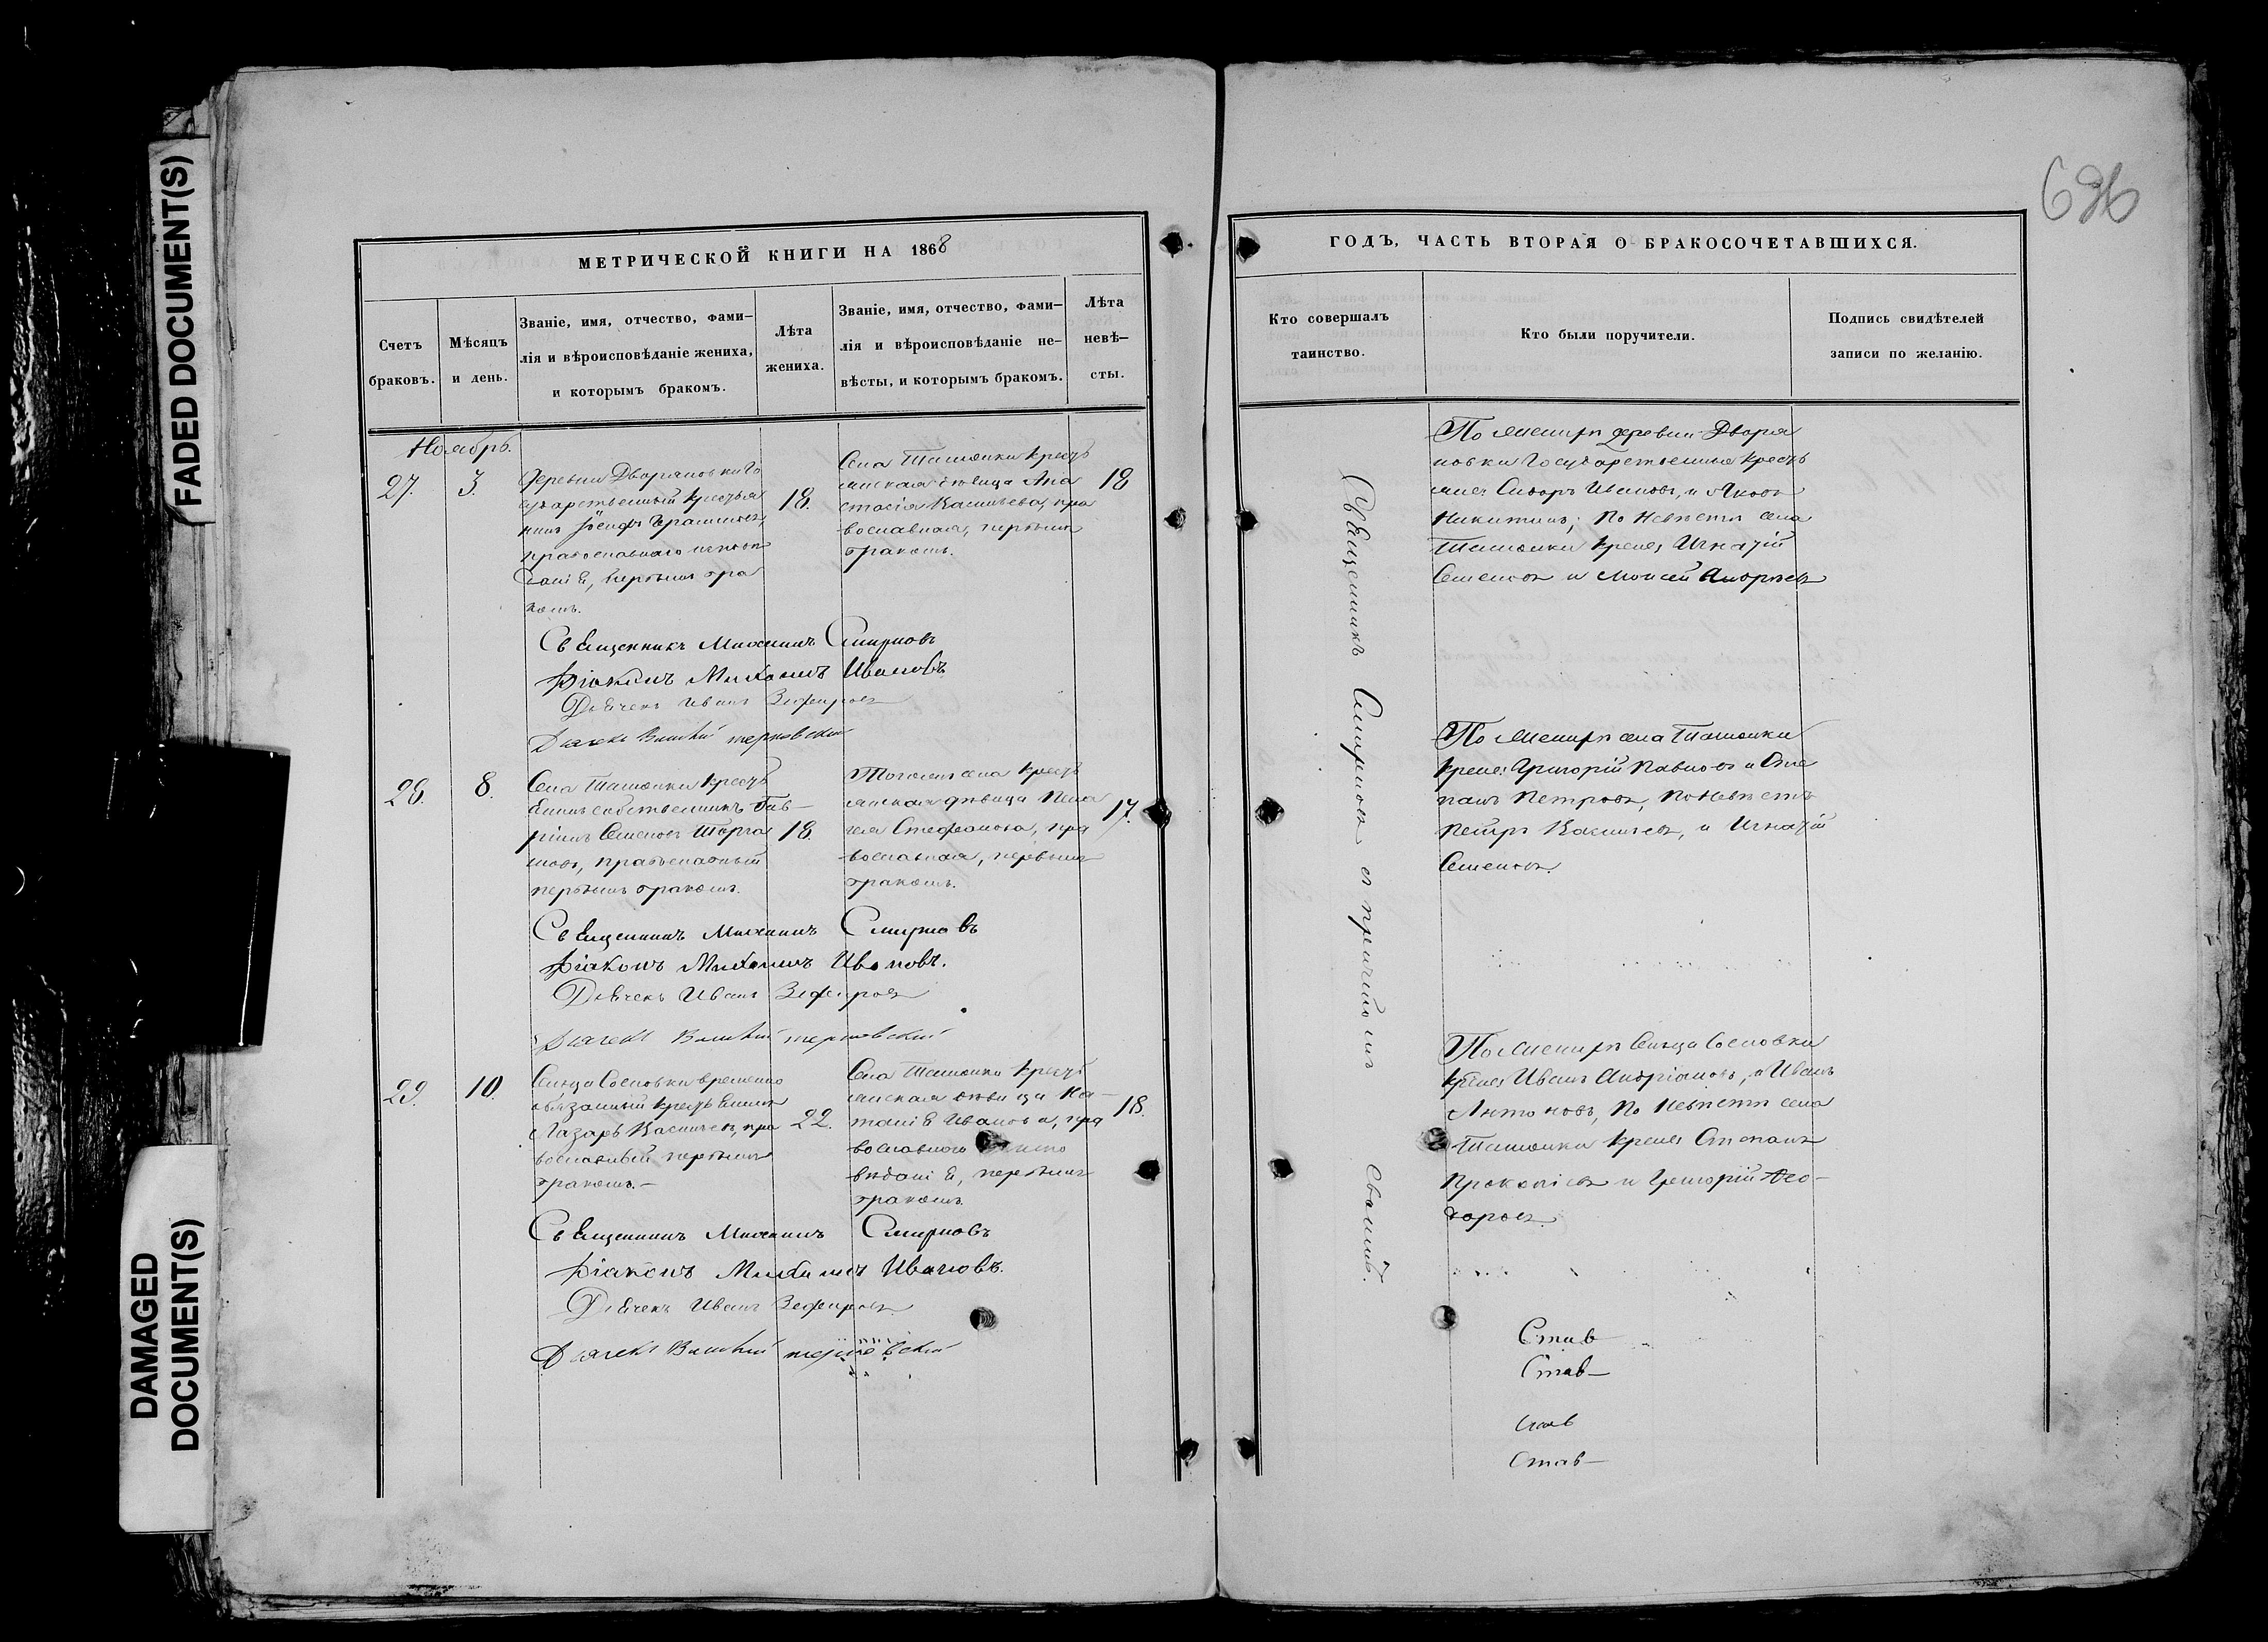 FADED DOCUMENT(S)
DAMAGED
DOCUMENT(S)
696
МЕТРИЧЕСКОЙ КНИГИ НА 1868
Счетъ
браковъ.
Мѣсяцъ
и день.
Званіе, имя, отчество, фами-
лія и вѣроисповѣданіе жениха,
и которымъ бракомъ.
Лѣта
жениха.
Званіе, имя, отчество, фами-
лія и вѣроисповѣданіе не-
вѣсты, и которымъ бракомъ.
Лѣта
невѣ-
сты.
Ноябрь.
27.
3.
Деревни Дворяновки Го
сударственный крестья
нинъ Іосифъ
православнаго исповѣ
даніе, первымъ бра
комъ.
18.
Села Ташолки крестъ
янская дѣвица Ана
стасія Васильева, пра
вославная, первымъ
бракомъ.
18
Священникъ Михаилъ Смирновъ
Діаконъ Михаилъ Ивановъ
Дьячекъ Иванъ Зефировъ
Дьячекъ терновский
28.
8.
Села Ташолки кресть
енинъ собственникъ Гав-
ріилъ Семеновъ
православный
первымъ бракомъ.
18.
Тогоже села кресть
янская дѣвица Пела
гея Стефанова, пра
вославная, первымъ
бракомъ.
17.
Священникъ Михаилъ Смирновъ
Діаконъ Михаилъ Ивановъ.
Дьячекъ Иванъ Зефировъ
Дьячекъ терновский
29.
10.
Сельца Сосновки временно
обязанный крестьенинъ
Лазарь Васильевъ, пра
вославный первымъ
бракомъ.-
22.
Села Ташолки кресть
янская дѣвица На-
таліе Иванова, пра
вославного испо
вѣданіе, первымъ
бракомъ.
18.
Священникъ Михаилъ Смирновъ
Діаконъ Михаилъ Ивановъ.
Дьячекъ Иванъ Зефировъ
Дьячекъ терновский
ГОДЪ, ЧАСТЬ ВТОРАЯ О БРАКОСОЧЕТАВШИХСЯ.
Кто совершалъ
таинство.
Кто были поручители.
Подпись свидѣтелей
записи по желанію.
Священникъ Смирновъ съ причтомъ
По женихѣ деревни Дворя
новки Государственные кресть
яне Сидоръ Ивановъ, и Яковъ
Никитинъ; по Невѣстѣ села
Ташолки крене Игнатій
Семеновъ и Моисей Андреевъ
По женихѣ села Ташолки
крене: Григорій Павловъ и Сте
панъ Петровъ, по Невѣстѣ
Петръ Васильевъ, и Игнатій
Семеновъ.
По женихѣ Сельца Сосновки
крене Иванъ Андріановъ, и Иванъ
Антоновъ, По Невѣстѣ села
Ташолки крене Степанъ
Прокопіевъ и Григорій Ѳео-
доровъ
Став
Став-
став
став-